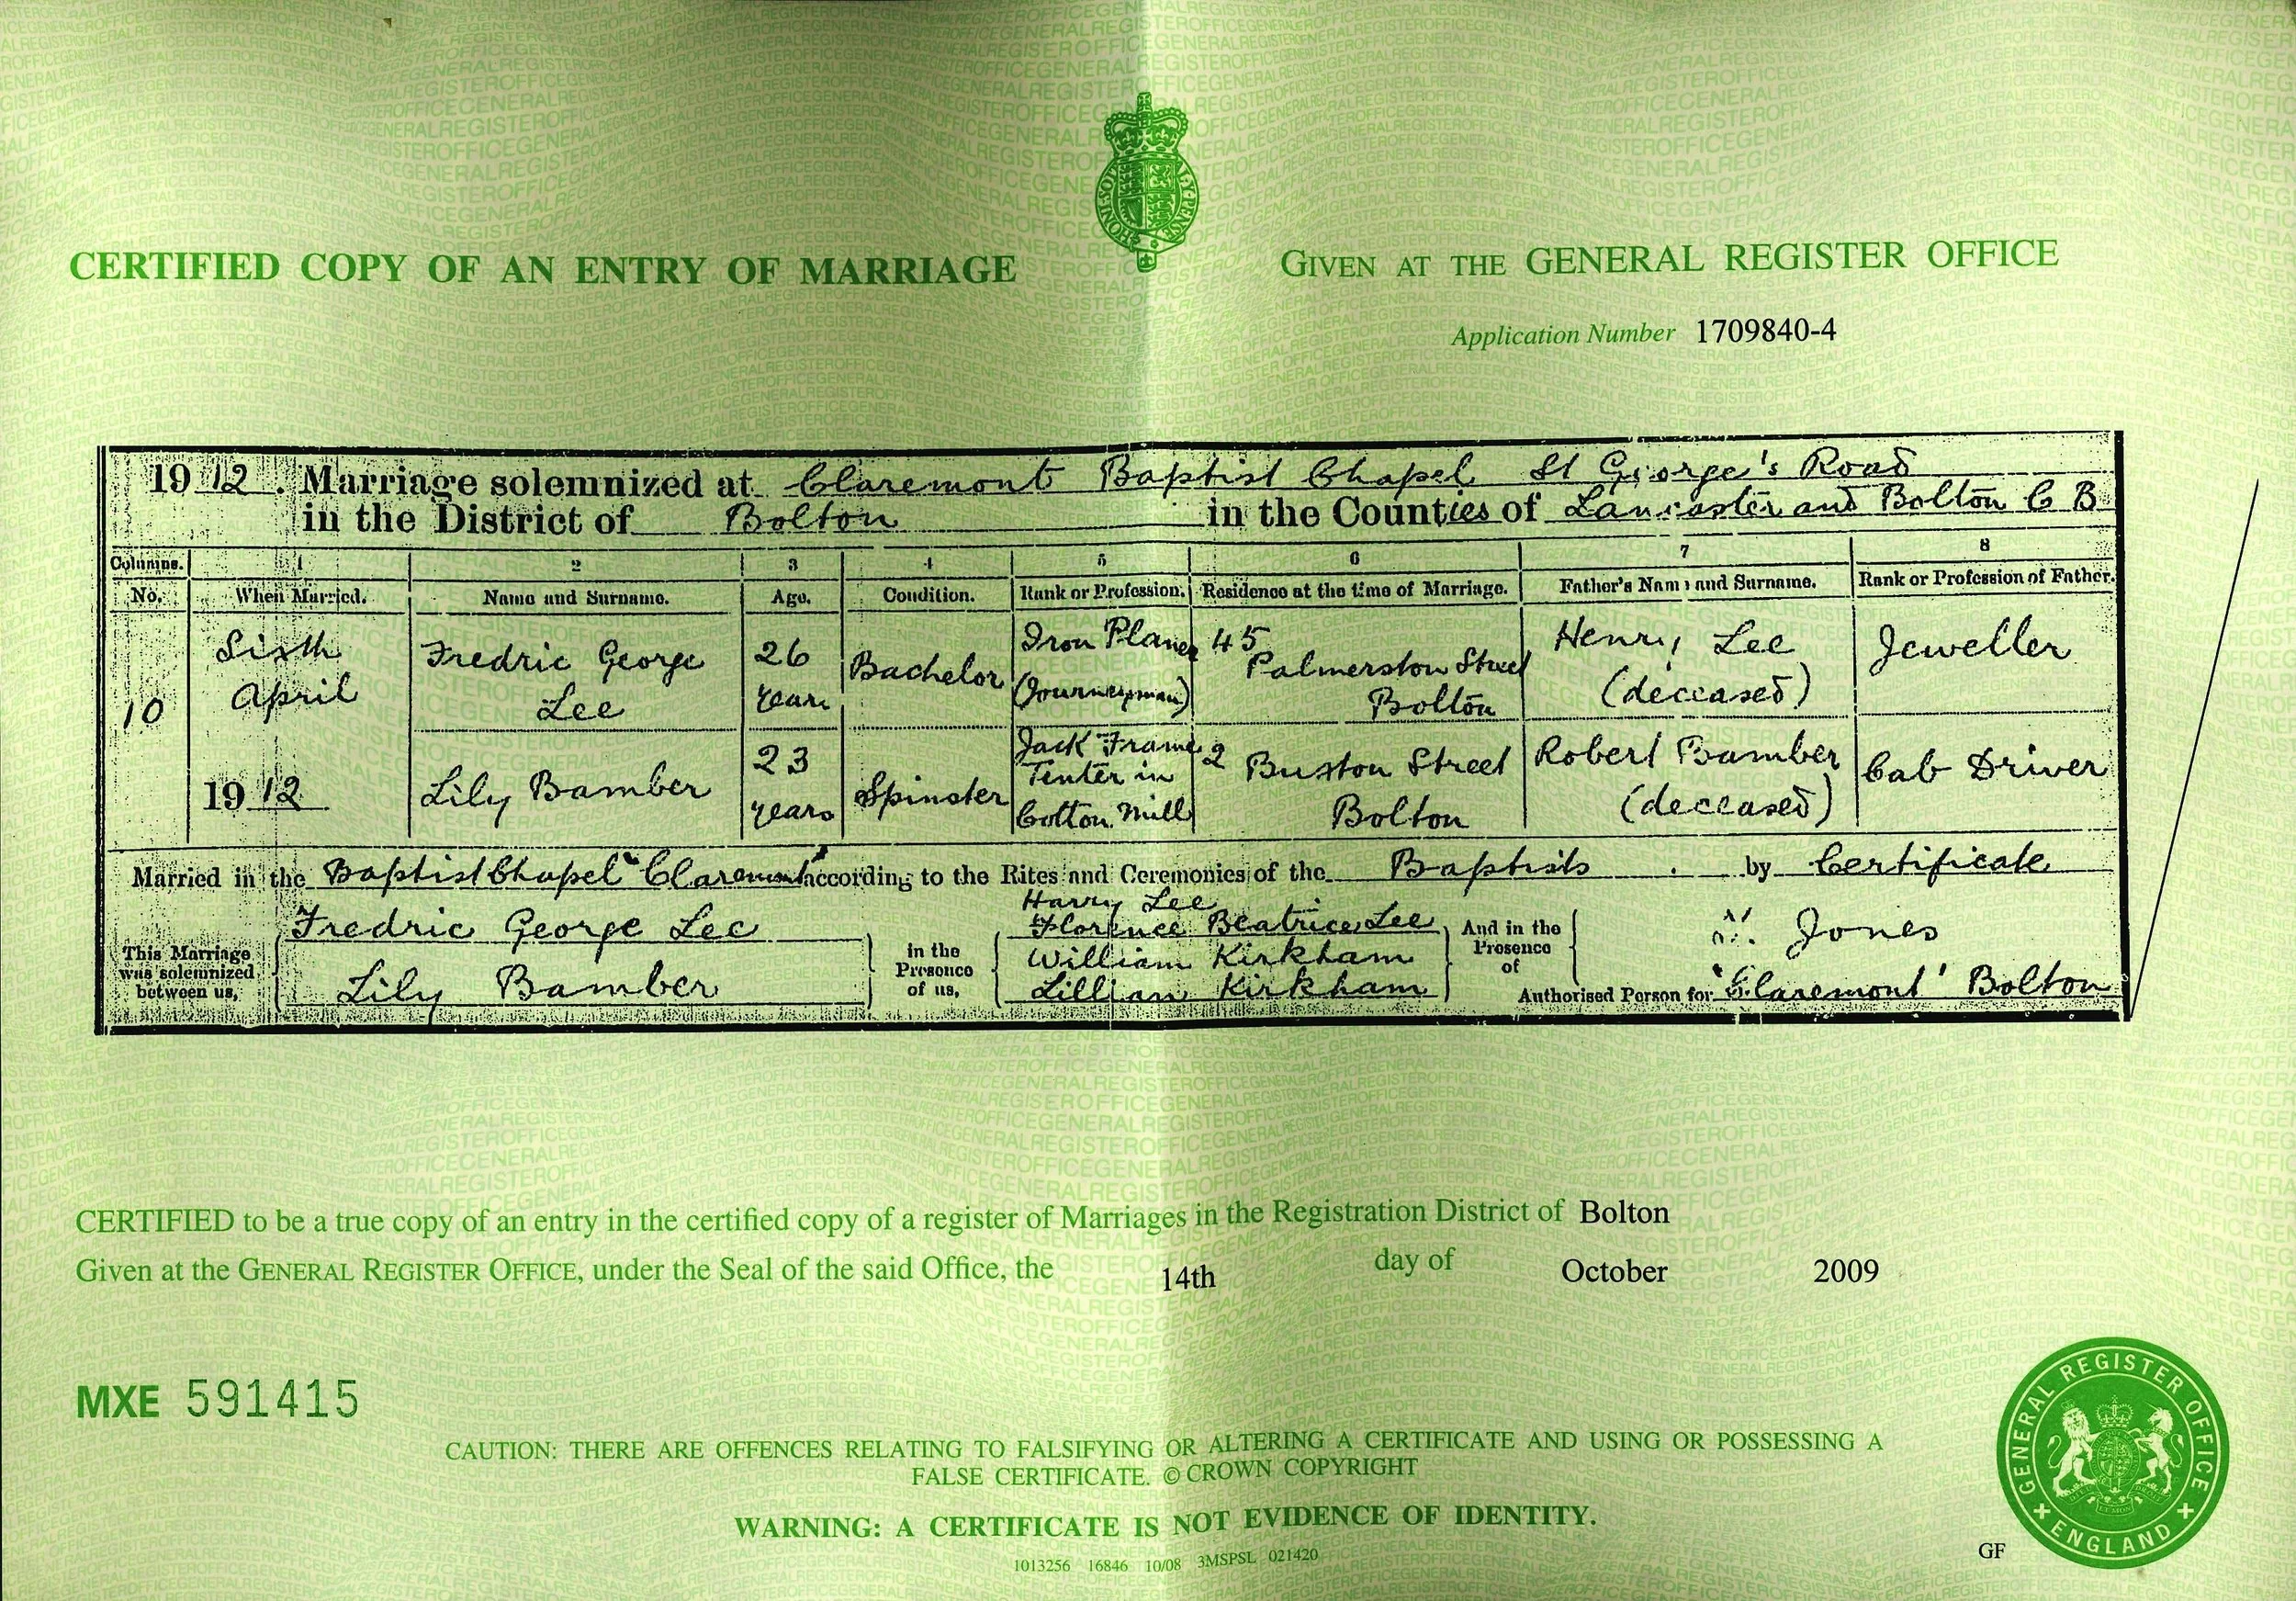 CERTIFIED COPY OF AN ENTRY OF MARRIAGE
GIVEN AT THE GENERAL REGISTER OFFICE
Application Number 1709840-4
1912. Marriage solemnized at Claremont Baptist Chapel St George's Road
in the District of Bolton in the Counties of Lancaster and Bolton C B
Columns. 1 2 3 4 5 6 7 8
No. When Married. Name and Surname. Age. Condition. Rank or Profession. Residence at the time of Marriage. Father's Name and Surname. Rank or Profession of Father.
10
Sixth
April
1912
Fredric George
Lee
26
years
Bachelor
Iron Planer
(Journeyman)
45
Palmerston Street
Bolton
Henry Lee
(deceased)
Jeweller
Lily Bamber
23
years
Spinster
Jack Frame
Tenter in
Cotton Mill
2 Buxton Street
Bolton
Robert Bamber
(deceased)
Cab Driver
Married in the Baptist Chapel "Claremont" according to the Rites and Ceremonies of the Baptists by Certificate
This Marriage
was solemnized
between us,
Fredric George Lee
Lily Bamber
in the
Presence
of us,
Harry Lee
Florence Beatrice Lee
William Kirkham
Lillian Kirkham
And in the
Presence
of
Jones
Authorised Person for 'Claremont' Bolton
CERTIFIED to be a true copy of an entry in the certified copy of a register of Marriages in the Registration District of Bolton
Given at the GENERAL REGISTER OFFICE, under the Seal of the said Office, the 14th day of October 2009
MXE 591415
CAUTION: THERE ARE OFFENCES RELATING TO FALSIFYING OR ALTERING A CERTIFICATE AND USING OR POSSESSING A
FALSE CERTIFICATE. © CROWN COPYRIGHT
WARNING: A CERTIFICATE IS NOT EVIDENCE OF IDENTITY.
1013256 16846 10/08 3MSPSL 021420
GF
GENERAL REGISTER OFFICE
ENGLAND